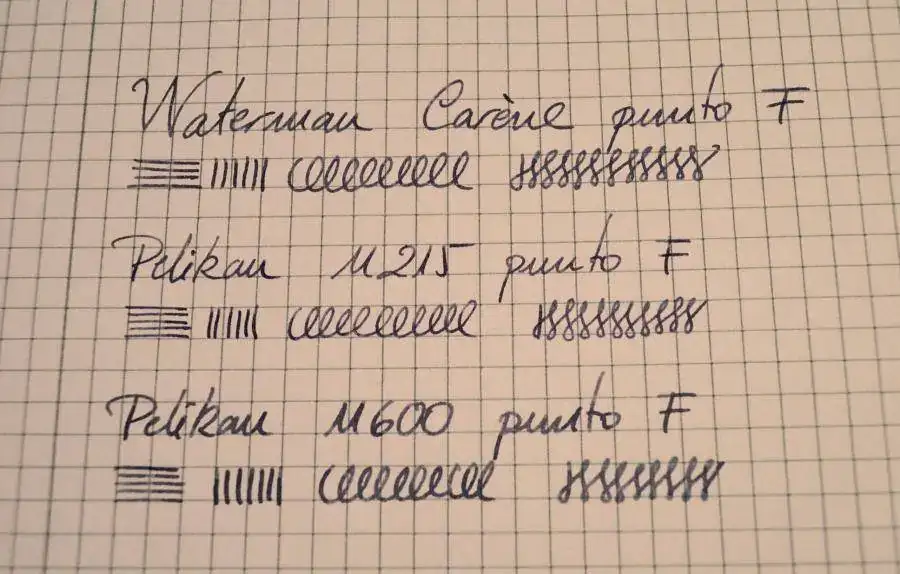 Waterman Carène punto F
Pelikan M215 punto F
Pelikan M600 punto F